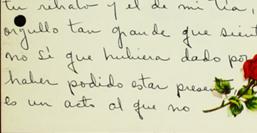 tu retrato y el de mi tía,
orgullo tan grande que sient
no sé que hubiera dado por
haber podido estar present
es un acto al que no